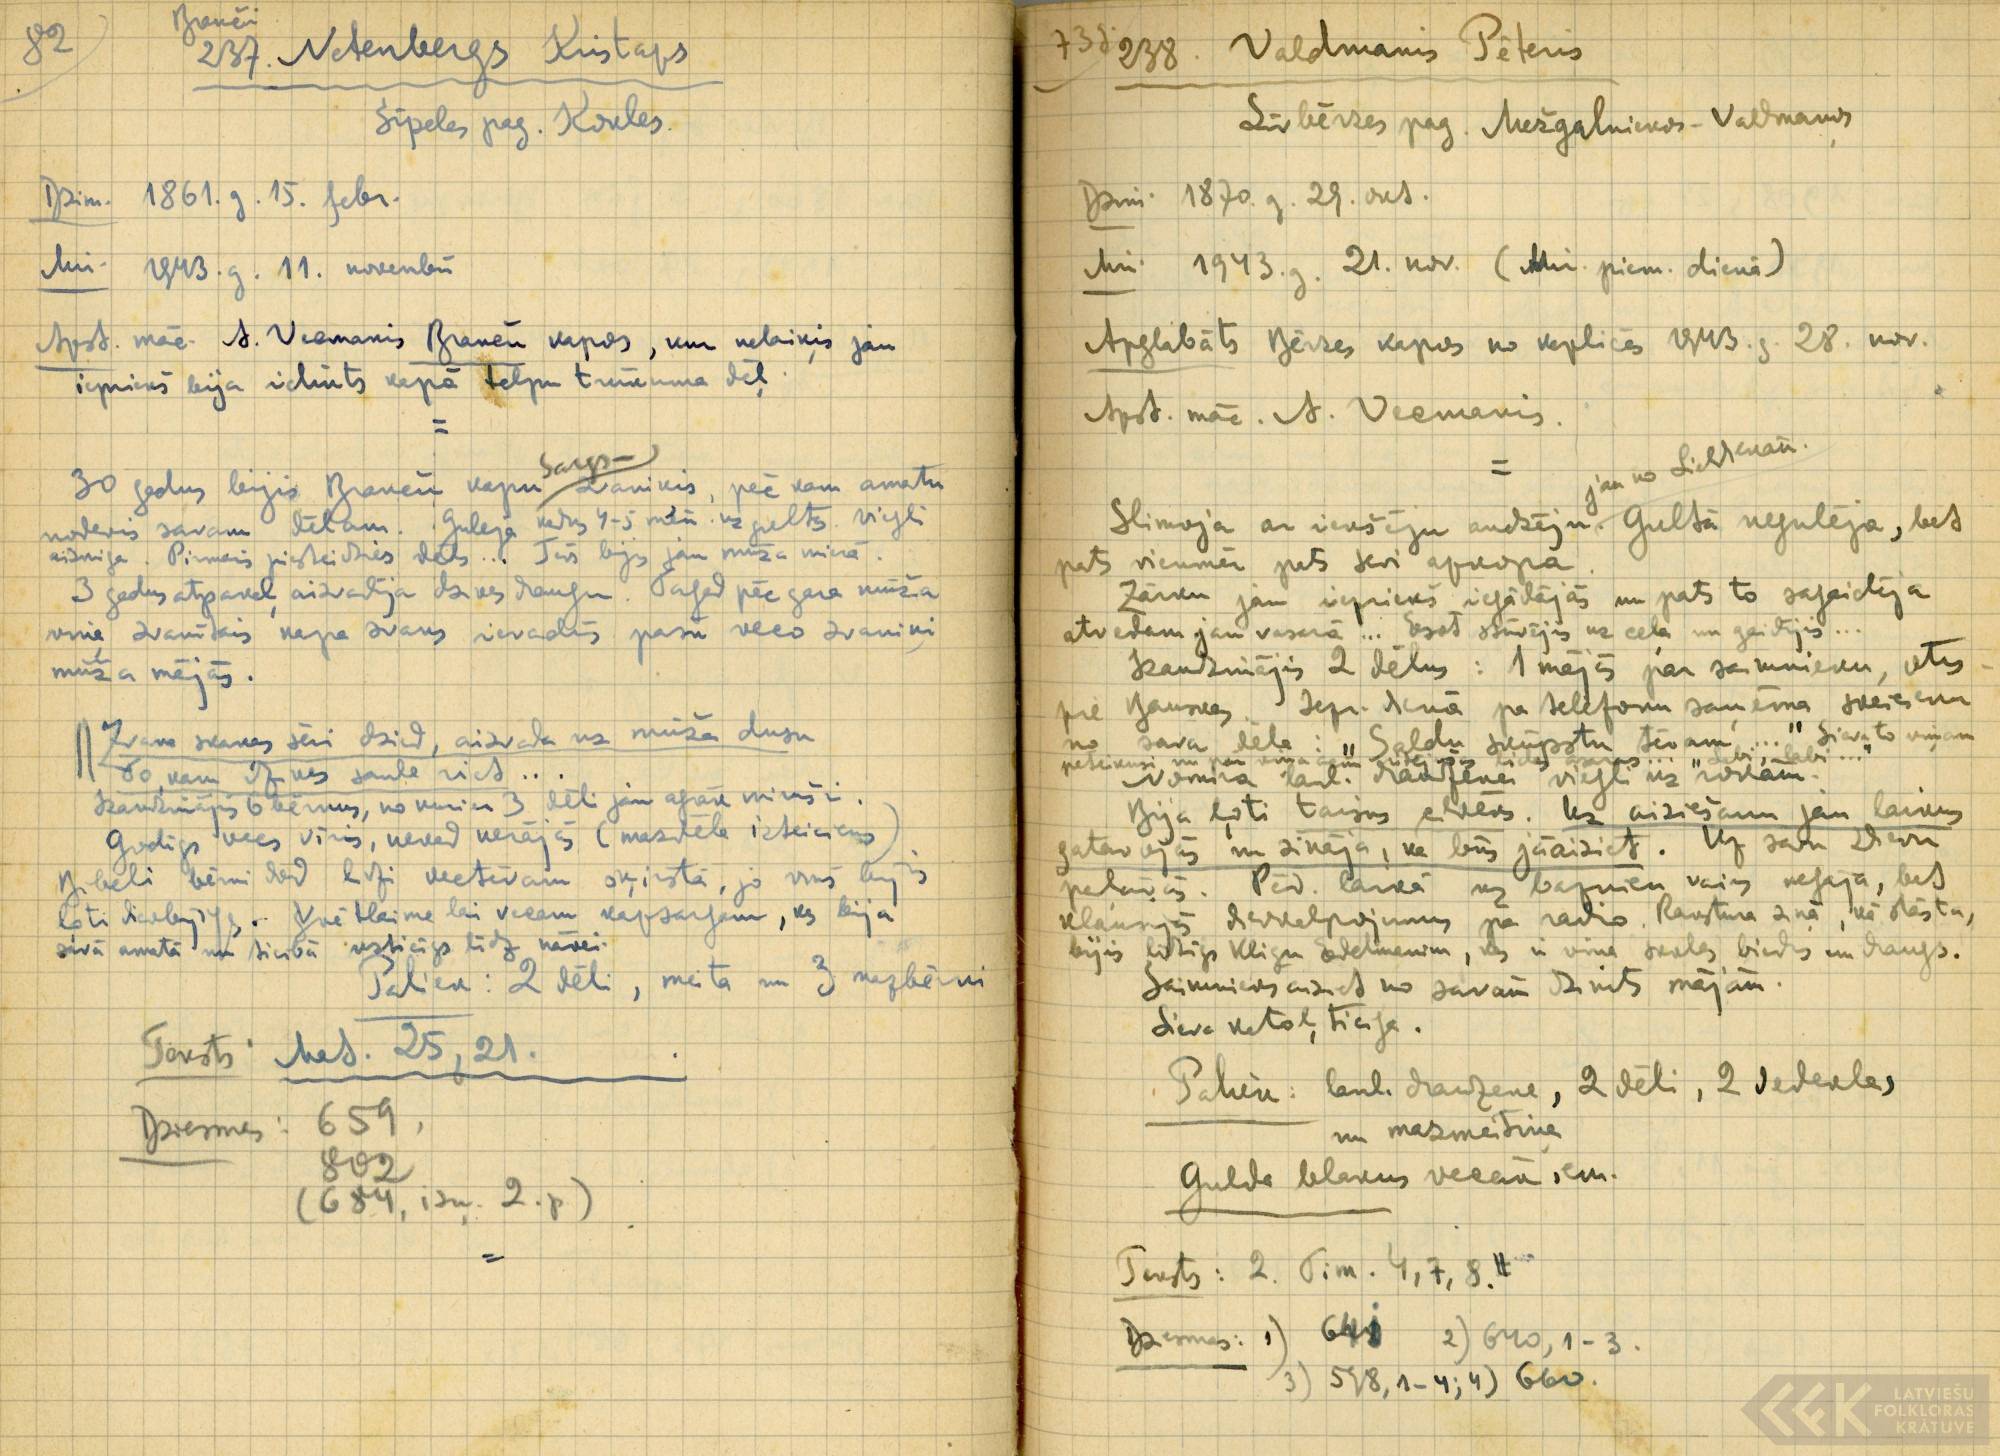 82
Brankči
237. Notenbergs Kristaps
Sīpeles pag. Kokles.
Dzim. 1861. g. 15. febr.
Mir. 1943. g. 11. novembrī
Apst. māc. A. Vecmanis kapos, kur nelaiķis jau
iepriekš bija ielikts kapā telpu trūkuma dēļ.
=
Sargs-
30 gadus bijis kapu zvaniķis, pēc kam amatu
nodevis savam dēlam. Gulējā 4-5 mēn. uz gultas. Viegli
aizmiga. Pirmais piesteidzies dēls... Tēvs bijis jau mūža mierā.
3 gadus atpakaļ, aizvadīja dzīves draugu. Tagad pēc gara mūža
viņa zvanītais kapa zvans ievadīs pašu veco zvaniķi
mūža mājās.
Zvans skanēs sēri dzied, aizvada uz mūža dusu
To, kam dzīves saule riet...
Izaudzinājis 6 bērnus, no kuriem 3 dēli jau agrāk miruši.
Godīgs vecs vīrs, nekad nerājās (mazdēla izteiciens)
Bībeli bērni dod līdzi vectēvam šķirstā, jo viņš bijis
ļoti dievbijīgs. Svētlaime lai vecam kapsargam, kas bija
savā amatā un ticībā uzticīgs līdz nāvei.
Paliek: 2 dēli, meita un 3 mazbērni
Teksts: Mat. 25, 21.
Dziesmas: 659,
802
(684, izņ. 2. p)
=
73 g. 238. Valdmanis Pēteris
Līvbērzes pag. Mežgalniekos-Valdmaņos
Dzim. 1870. g. 29. okt.
Mir. 1943. g. 21. nov. (Mir. piem. dienā)
Apglabāts Bērzes kapos no kapličas 1943. g. 28. nov.
Apst. māc. A. Vecmanis.
=
jau no Lieldienām.
Slimoja ar iekšēju audzēju. Gultā negulēja, bet
pats vienmēr pats sevi apkopa.
Zārku jau iepriekš iegādājās un pats to sagaidīja
atvedam jau vasarā... Esot stāvējis uz ceļa un gaidījis...
Izaudzinājis 2 dēlus: 1 mājās par saimnieku, otrs
pie Bauskas. dienā pa telefonu saņēma sveicienu
no sava dēla: "Saldu skūpstu tēvam..." Sieva to viņam
Nomira laul. draudzenei viegli uz rokām.
Bija ļoti taisns cilvēks. Uz aiziešanu jau laikus
gatavojās un zināja, ka būs jāaiziet. Uz savu Dievu
paļāvās. Pēd. laikā uz baznīcu vairs negāja, bet
klausījās dievkalpojumus pa radio. Raksturā, kā stāsta,
bijis līdzīgs Kligu Ēdelmanim, kas ir viņa skolas biedrs un draugs.
Saimnieks aiziet no savām dzimts mājām.
Sieva katoļ. ticīga.
Paliek: laul. draudzene, 2 dēli, 2 vedeklas
un mazmeitiņa
Gulda blakus vecākiem.
Teksts: 2. Tim. 4, 7, 8.
Dziesmas: 1) 641 2) 640, 1-3.
3) 598, 1-4; 4) 660.
LATVIEŠU
FOLKLORAS
KRĀTUVE